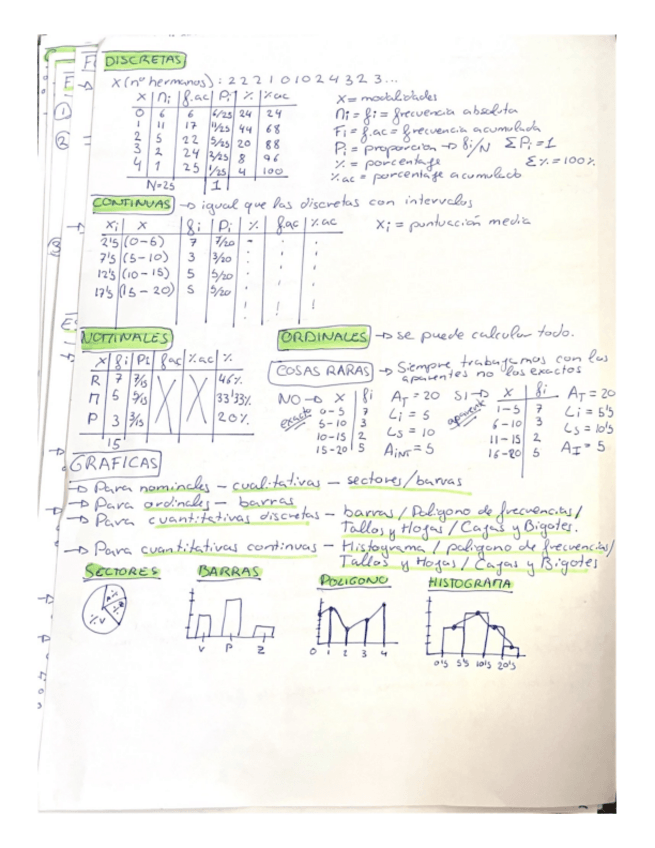 DISCRETAS
X (nº hermanos) : 2 2 2 1 0 1 0 2 4 3 2 3 ...
X | ni | f.ac | Pi | % | % ac
0 | 6 | 6 | 6/25 | 24 | 24
1 | 11 | 17 | 11/25 | 44 | 68
2 | 5 | 22 | 5/25 | 20 | 88
3 | 2 | 24 | 2/25 | 8 | 96
4 | 1 | 25 | 1/25 | 4 | 100
N=25 1
X = modalidades
ni = fi = frecuencia absoluta
Fi = f.ac = frecuencia acumulada
Pi = proporción → fi/N ΣPi = 1
% = porcentaje Σ% = 100%
% ac = porcentaje acumulado
CONTINUAS → igual que las discretas con intervalos
Xi | X | fi | Pi | % | f.ac | % ac
2'5 | (0-5) | 7 | 7/20
7'5 | (5-10) | 3 | 3/20
12'5 | (10-15) | 5 | 5/20
17'5 | (15-20) | 5 | 5/20
Xi = puntuación media
NOMINALES
X | fi | Pi | fac | %ac | %
R | 7 | 7/15 | 46%
M | 5 | 5/15 | 33'33%
P | 3 | 3/15 | 20%
15
ORDINALES → se puede calcular todo.
COSAS RARAS → Siempre trabajamos con los
aparentes no los exactos
NO → X | fi
exacto
0-5 | 7
5-10 | 3
10-15 | 2
15-20 | 5
AT = 20
Li = 5
Ls = 10
AINT = 5
SI → X | fi
aparente
1-5 | 7
6-10 | 3
11-15 | 2
16-20 | 5
AT = 20
Li = 5'5
Ls = 10'5
AI = 5
GRAFICAS
→ Para nominales - cualitativas - sectores/barras
→ Para ordinales - barras
→ Para cuantitativas discretas - barras / Polígono de frecuencias /
Tallos y Hojas / Cajas y Bigotes.
→ Para cuantitativas continuas - Histograma / polígono de frecuencias/
Tallos y Hojas / Cajas y Bigotes
SECTORES
BARRAS
POLIGONO
HISTOGRAMA
% V
V P Z
0 1 2 3 4
0'5 5'5 10'5 20'5